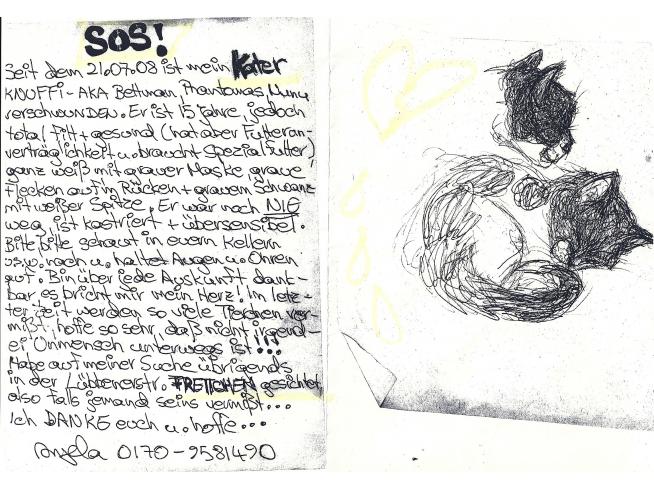 SOS!
Seit dem 21.07.08 ist mein Kater
KNUFFI - AKA Bettman, Phantomas, Mumu
verschwunden. Er ist 15 Jahre, jedoch
total fit + gesund (hat aber Futterun-
verträglichkeit u. braucht Spezialfutter)
ganz weiß mit grauer Maske, graue
Flecken auf'm Rücken + grauem Schwanz
mit weißer Spitze. Er war noch NIE
weg, ist kastriert + übersensibel.
Bitte, bitte schaut in euern Kellern
usw. nach u. haltet Augen u. Ohren
auf. Bin über jede Auskunft dank-
bar, es bricht mir mein Herz! Im letz-
ter Zeit werden so viele Tierchen ver-
mißt, hoffe so sehr, daß nicht irgend-
ei Unmensch unterwegs ist!!!
Habe auf meiner Suche übrigends
in der Lübbenerstr. FRETTCHEN gesichtet
also falls jemand seins vermißt...
Ich DANKE euch u. hoffe...
Angela 0170-9581490